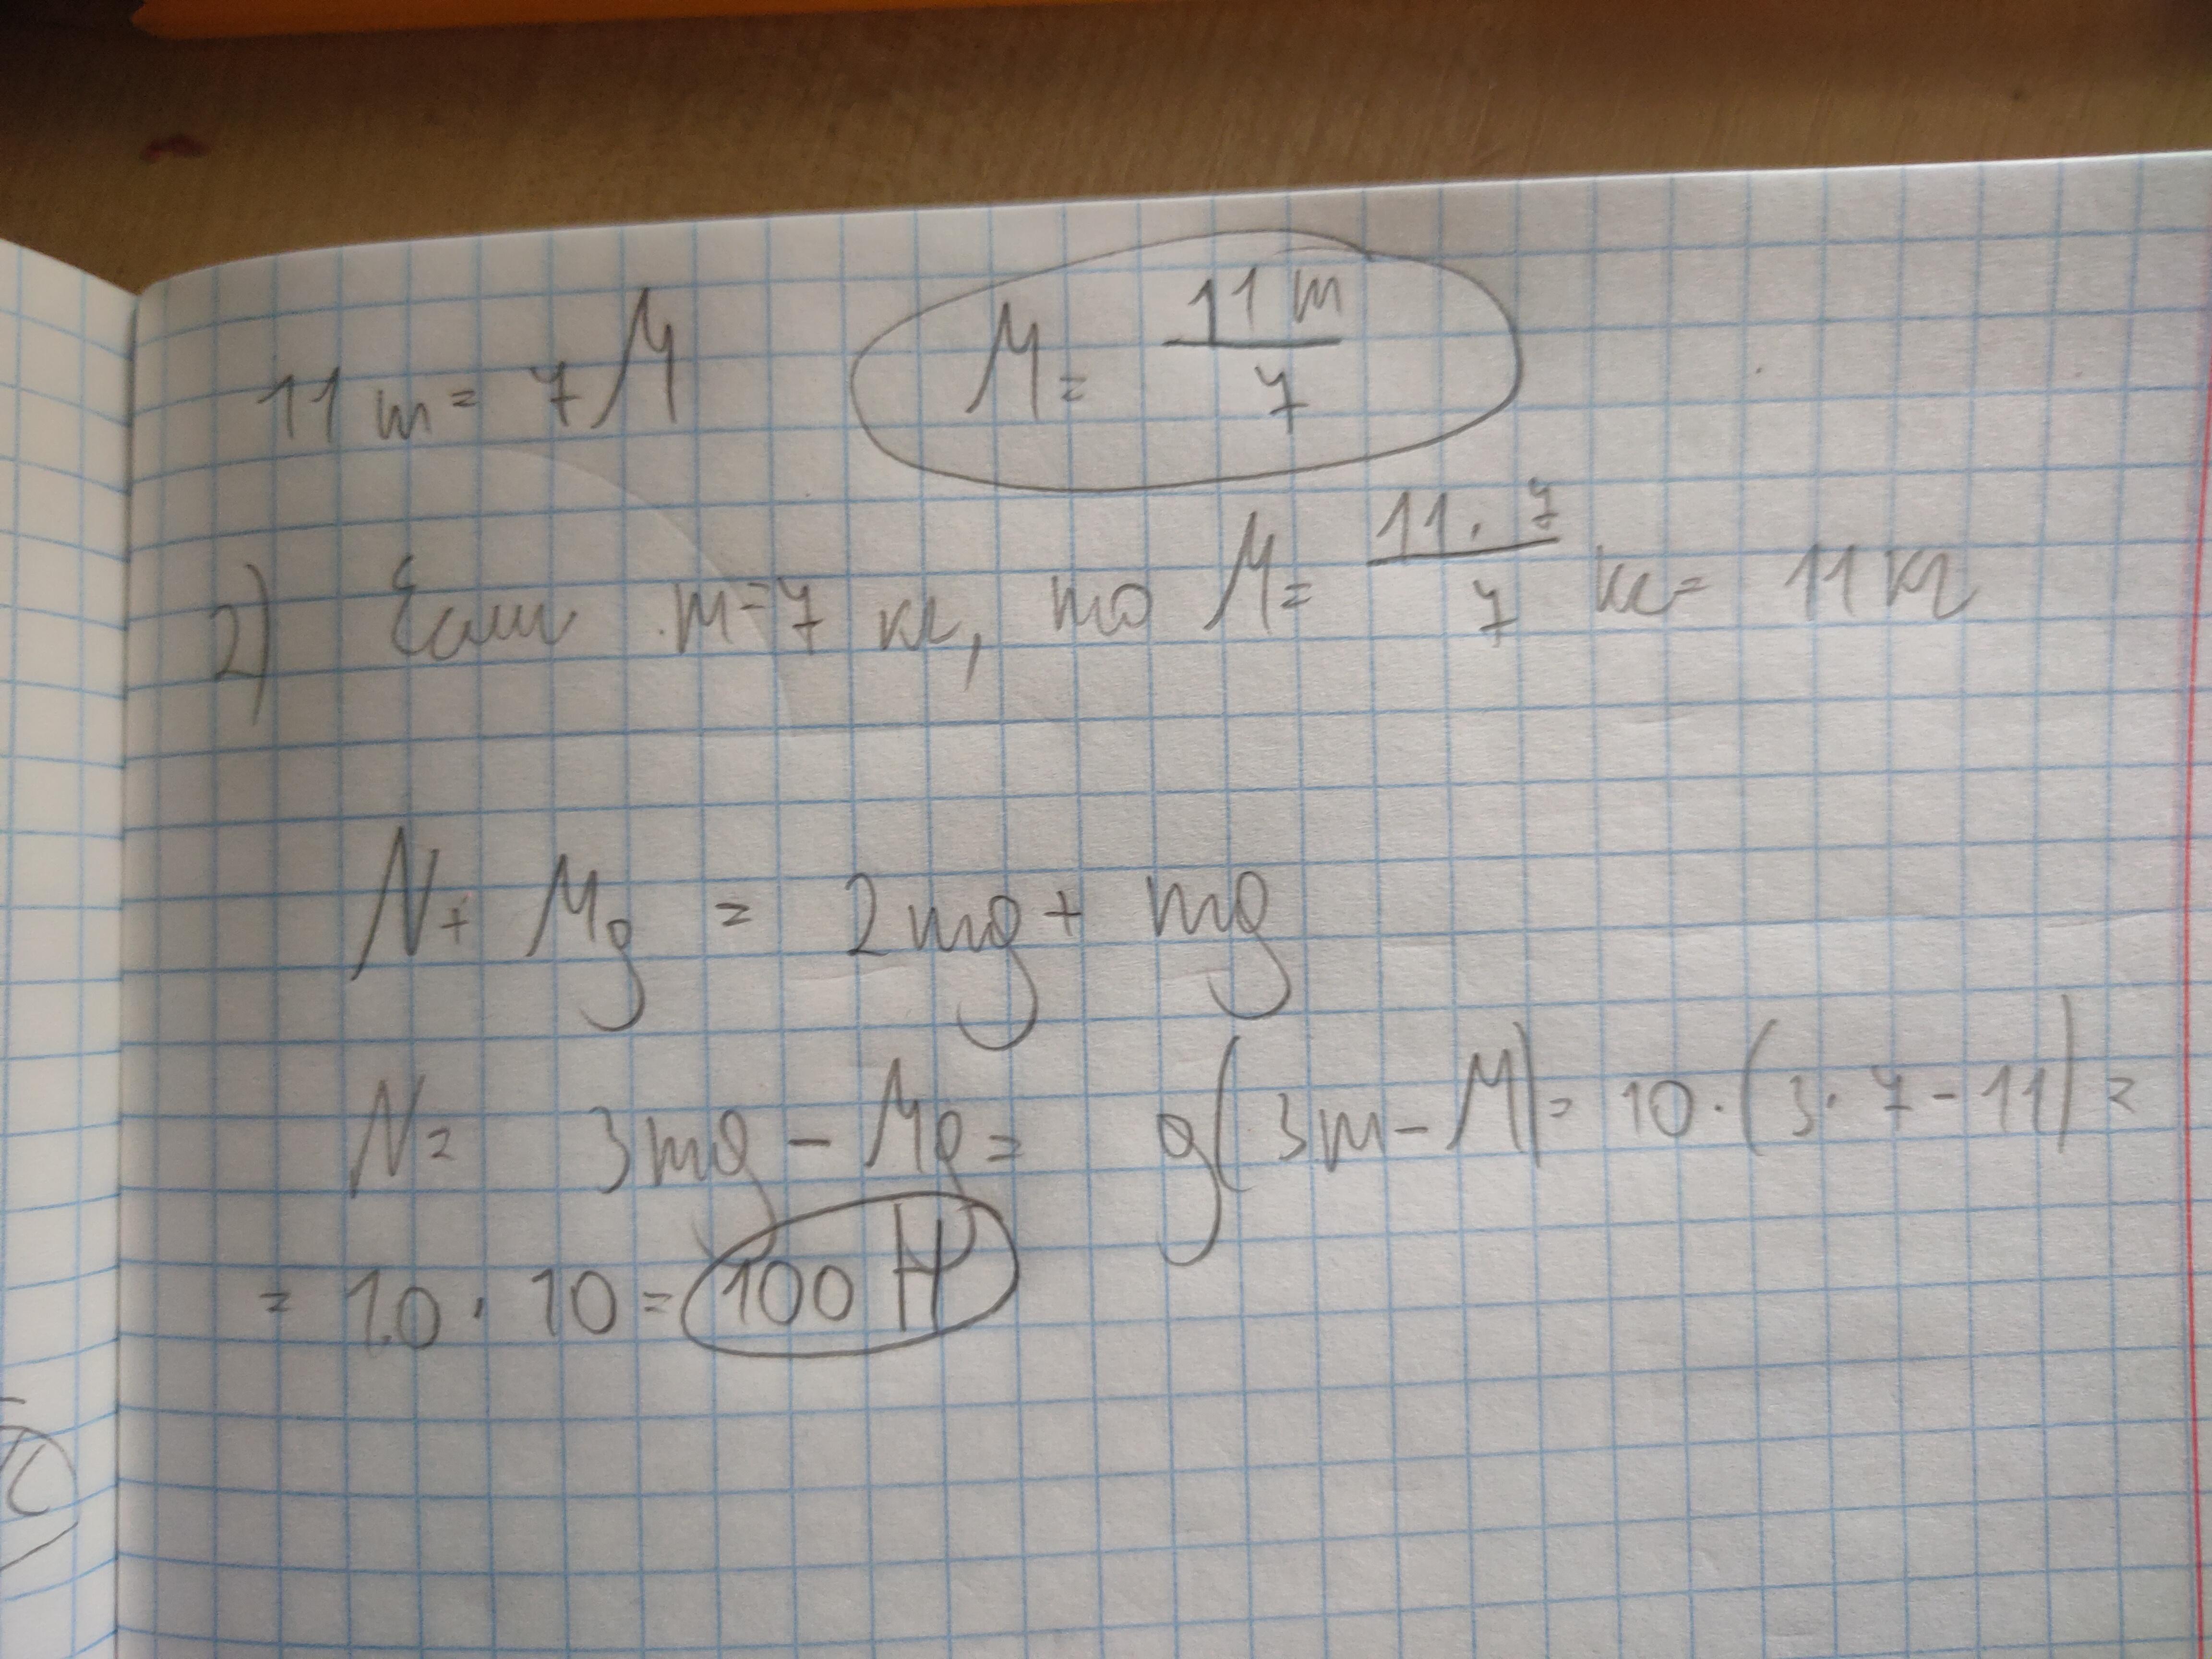 11 m = 7 M M = 11 m / 7
2) Если m = 7 кг, то M = 11 · 7 / 7 кг = 11 кг
N + Mg = 2mg + mg
N = 3mg - Mg = g(3m - M) = 10 · (3 · 7 - 11) =
= 10 · 10 = 100 Н